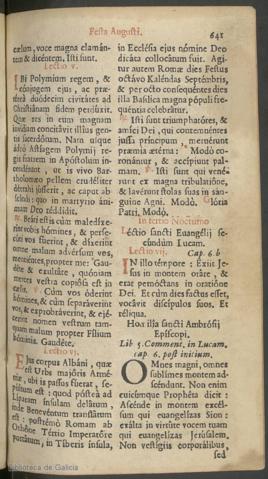 Festa Augusti.
641
cælum, voce magna clamán-
tem & dicéntem, Isti sunt.
Lectio v.
IBi Polymium regem, &
cónjugem ejus, ac præ-
térea duódecim civitátes ad
Christiánam fidem perdúxit.
Quæ res in eum magnam
invídiam concitávit illíus gen-
tis sacerdótum. Nam usque
ádeo Astiagem Polymij re-
gis fratrem in Apóstolum in-
cendérunt, ut is vivo Bar-
tholomæo pellem crudéliter
détrahi jússerit, ac caput ab-
scíndi: quo in martyrio áni-
mam Deo réddidit.
Beáti estis cùm maledíxe-
rint vobis hómines, & perse-
cúti vos fúerint, & díxerint
omne malum advérsum vos,
mentiéntes, propter me: Gau-
déte & exultáte, quóniam
merces vestra copiósa est in
cælis. ℣. Cùm vos óderint
hómines, & cùm separáverint
vos, & exprobráverint, & ejé-
cerint nomen vestrum tam-
quam malum propter Fílium
hóminis. Gaudéte.
Lectio vj.
EJus corpus Albáni, quæ
est Urbs majóris Armé-
niæ, ubi is passus fúerat, se-
púltum est: quod pósteà ad
Líparam ínsulam delátum,
inde Benevéntum translátum
est: postrémò Romam ab
Othóne Tértio Imperatóre
portátum, in Tíberis ínsula,
in Ecclésia ejus nómine Deo
dicáta collocátum fuit. Agi-
tur autem Romæ dies Festus
octávo Kaléndas Septémbris,
& per octo consequéntes dies
illa Basílica magna pópuli fre-
quéntia celebrátur.
Isti sunt triumphatóres, &
amíci Dei, qui contemnéntes
jussa príncipum, meruérunt
præmia ætérna: * Modò co-
ronántur, & accípiunt pal-
mam. ℣. Isti sunt qui vené-
runt ex magna tribulatióne,
& lavérunt stolas suas in sán-
guine Agni. Modò. Glória
Patri, Modò,
In tertio Nocturno
Léctio sancti Euangélij se-
cúndùm Lucam.
Lectio vij. Cap. 6 b
IN illo témpore: Exiit Je-
sus in montem oráre, &
erat pernóctans in oratióne
Dei. Et cùm dies factus esset,
vocávit discípulos suos. Et
réliqua.
Homilía sancti Ambrósii
Epíscopi.
Lib 5. Comment, in Lucam,
cap. 6. post initium.
OMnes magni, omnes
sublímes montem ad-
scéndunt. Non enim
cuicúmque Prophéta dicit:
Ascénde in montem excél-
sum qui euangelízas Sion:
exálta in virtúte vocem tuam
qui euangelízas Jerúsalem.
Non vestígiis corporálibus,
sed
Biblioteca de Galicia